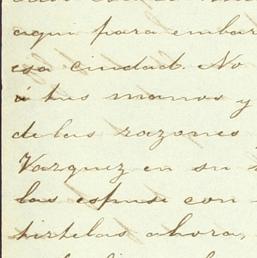 aqui para embar
esa ciudad. No
á tus manos y
de las razones
Vazquez en su
las espuse con
tirtelas ahora,